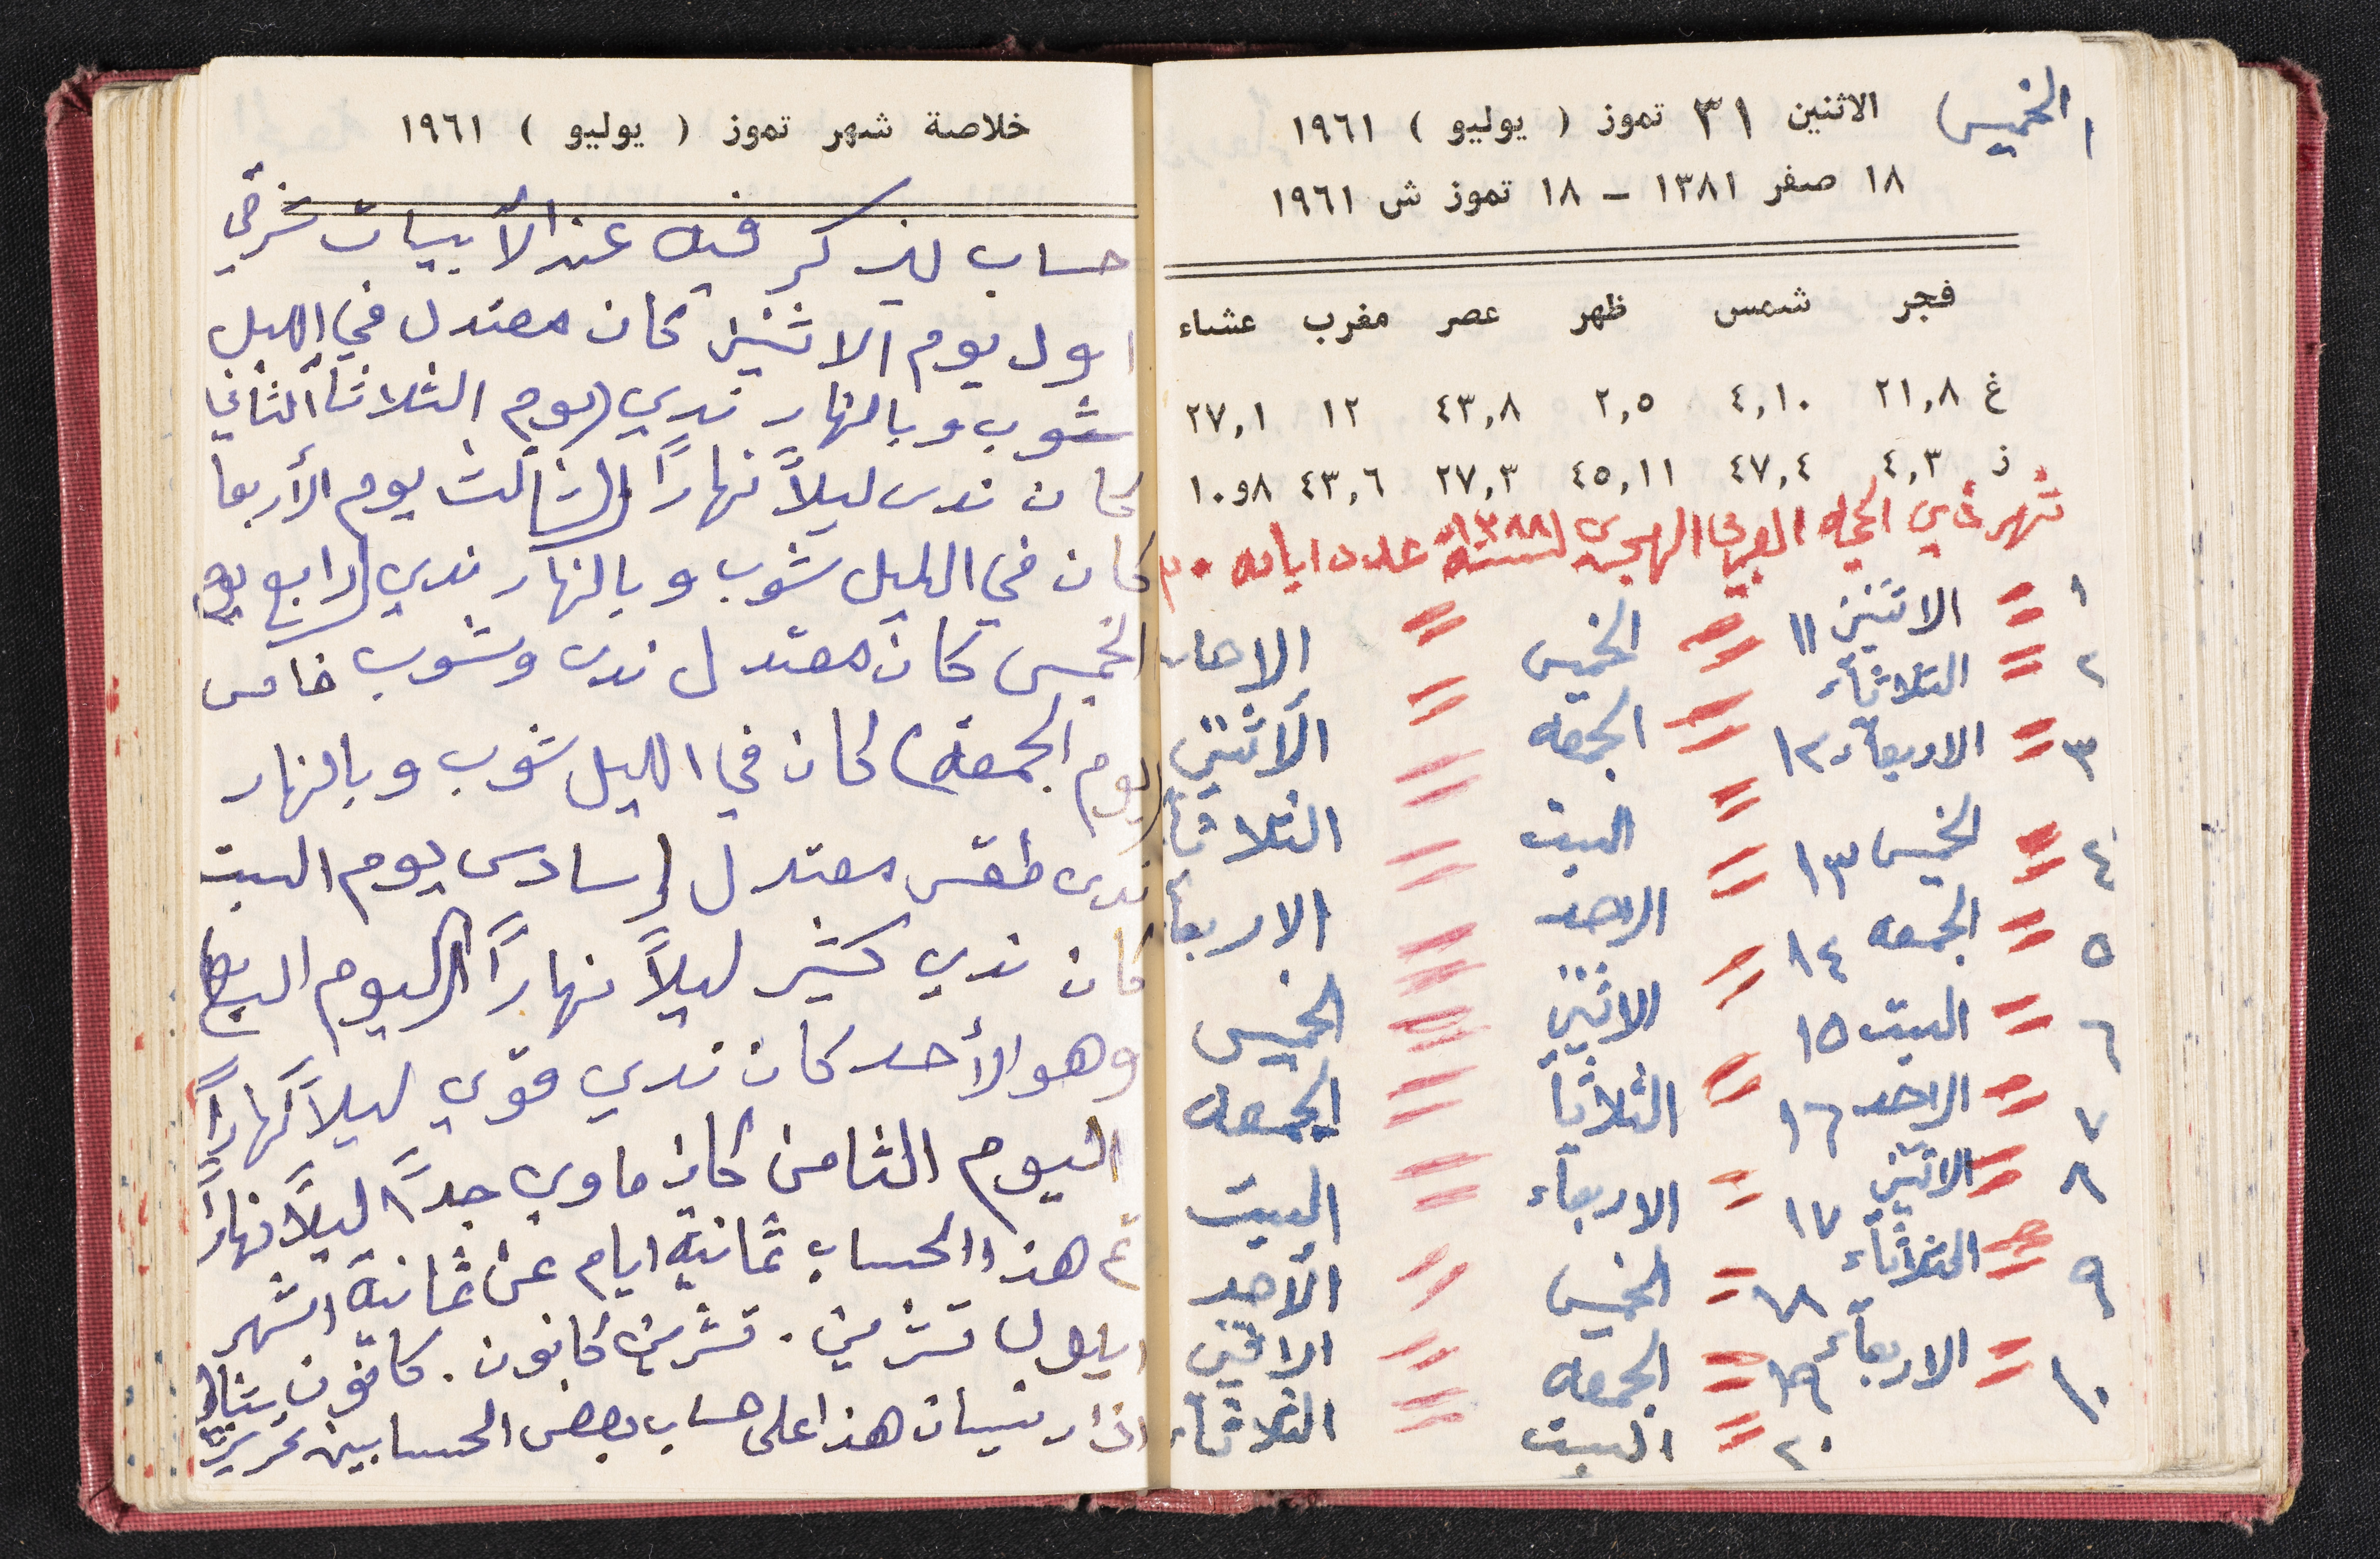 الخميس ١
الاثنين ٣١ تموز ( يوليو ) ١٩٦١
١٨ صفر ١٣٨١ – ١٨ تموز ش ١٩٦١
فجر شمس ظهر عصر مغرب عشاء
غ ٢١,٨ ٤,١٠ ٢,٥ ٤٣,٨ ١٢ ٢٧,١
ز ٤,٣ ٤٧,٤ ٤٥,١١ ٢٧,٣ ٤٣,٦ ٨و١٠
شهر ذي الحجه العربي الهجري لسنة ١٣٨٨ عدد ايامه ٣٠
١ = الاثنين ١١ = الخميس = الاحد
٢ = الثلاثاء ١٢ = الجمعه = الاثنين
٣ = الاربعاء ١٣ = السبت = الثلاثاء
٤ = الخميس ١٤ = الاحد = الاربعا
٥ = الجمعه ١٥ = الاثنين = الخميس
٦ = السبت ١٦ = الثلاثا = الجمعه
٧ = الاحد ١٧ = الاربعاء = السبت
٨ = الاثنين ١٨ = الخميس = الاحد
٩ = الثلاثاء ١٩ = الجمعه = الاثنين
١٠ = الاربعاء ٢٠ = السبت = الثلاثاء
خلاصة شهر تموز ( يوليو ) ١٩٦١
حساب يذكر فيه عند الأبيات شرقي
اول يوم الاثنين كان معتدل في الليل
شوب وبالنهار ندي (يوم الثلاثا الثاني
كان ندى ليلاً نهاراً (الثالث يوم الأربعا
كان في الليل شوب وبالنهار ندي (رابع يوم
الخميس كان معتدل ندى وشوب خامس
(يوم الجمعة) كان في الليل شوب وبالنهار
ندى طقس معتدل (سادس يوم السبت
كان ندي كثير ليلاً نهاراً (اليوم السابع)
وهو الأحد كان ندي قوي ليلاً نهاراً
اليوم الثامن كان ماوي جداً ليلاً نهاراً
تم هذا الحساب ثمانية ايام عن ثمانية اشهر
ايلول تشرين . تشرين كانون . كانون شباط
اذار نيسان هذا على حساب بعض الحسابين تحريرًا